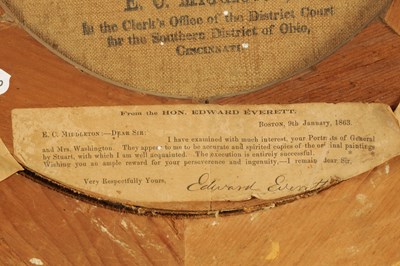 E. C. MIDDLETON
In the Clerk's Office of the District Court
for the Southern District of Ohio,
CINCINNATI
From the HON. EDWARD EVERETT.
BOSTON, 9th January, 1863.
E. C. MIDDLETON:—DEAR SIR.
I have examined with much interest, your Portraits of General
and Mrs. Washington They appear to me to be accurate and spirited copies of the original paintings
by Stuart, with which I am well acquainted. The execution is entirely successful.
Wishing you an ample reward for your perseverence and ingenuity,—I remain dear Sir.
Very Respectfully Yours,
Edward Everett